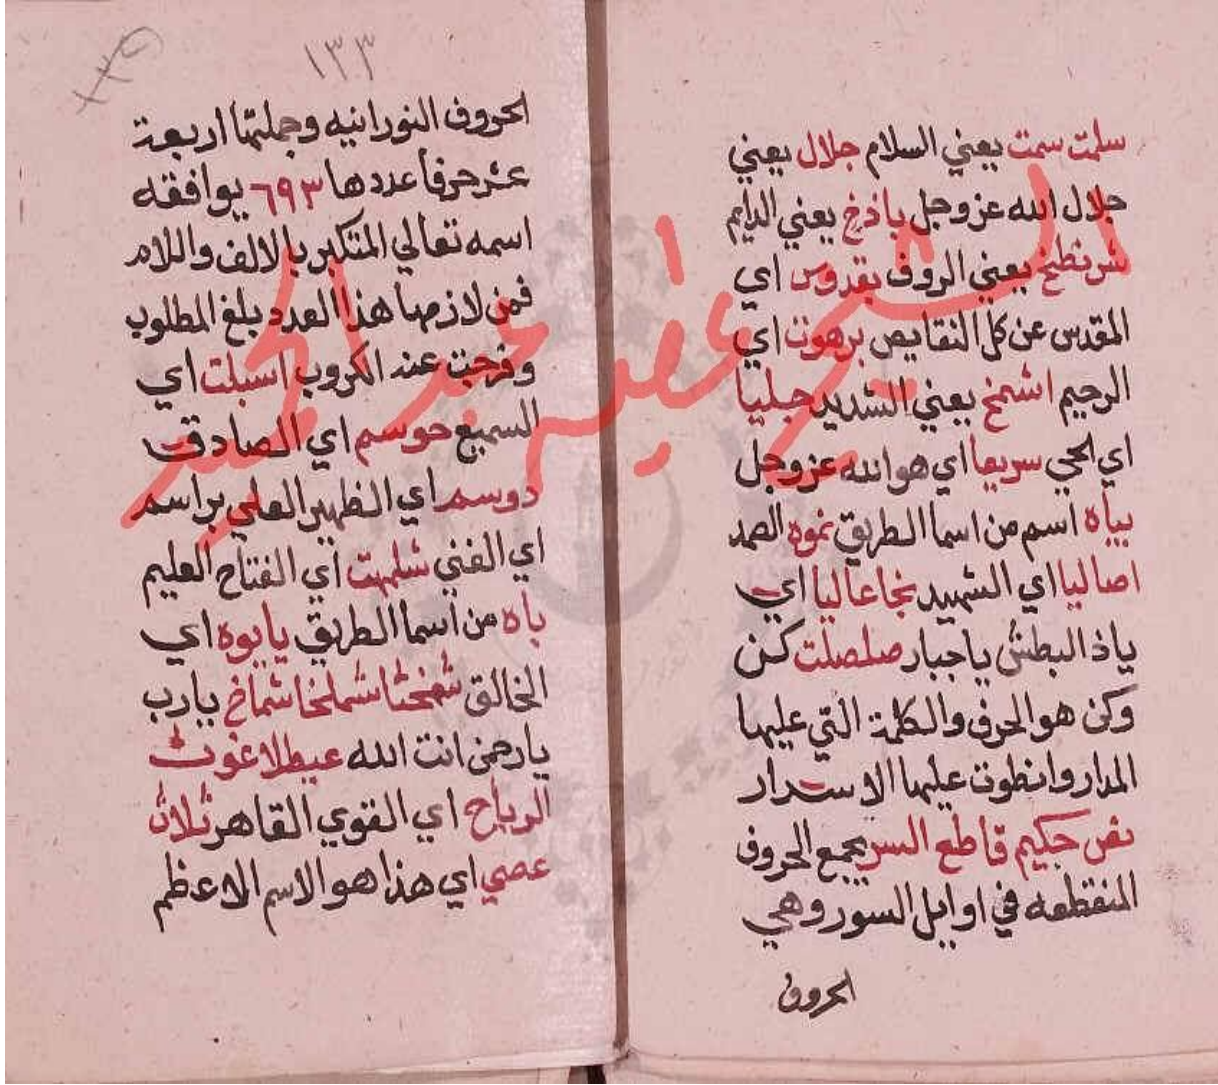 سلمت سمت يعني السلام جلال يعني
جلال الله عز وجل ياذخ يعني الدايم
يعني الروف بقدوس اي
المقدس عن كل النقايص برهوت اي
الرحيم اشمخ يعني الشديد جبليا
اي الحي سريعا اي هو الله عز وجل
بياه اسم من اسما الطريق نموه الصمد
اصاليا اي الشهيد نجاعاليا اي
ياذا البطش يا جبار صلصلت كن
وكن هو الحرف والكلمة التي عليها
المدار وانطوت عليها الاسرار
نص حكيم قاطع السر يجمع الحروف
المنقطعه في اوايل السور وهي
الحروف
١٣٣
الحروف النورانيه وجملتها اربعة
عشر حرفا عددها ٦٩٣ يوافقه
اسمه تعالي المتكبر بالالف واللام
فمن لازمها هذا العدد بلغ المطلوب
وفرجت عند الكروب اسبلت اي
السميع حوسم اي الصادق
دوسم اي الظهير العلي براسم
اي الغني شلمهت اي الفتاح العليم
باه من اسما الطريق يايوه اي
الخالق شمخثا شملخا شماخ يارب
يارحمن انت الله عيطلا غوث
الرياح اي القوي القاهر ثلاث
عصي اي هذا هو الاسم الاعظم